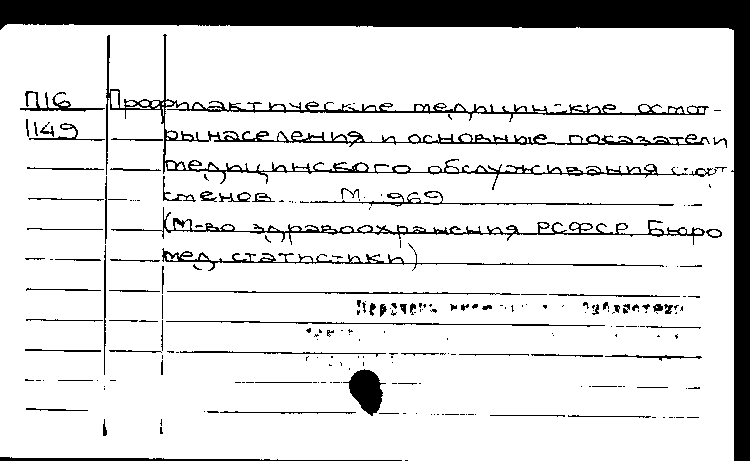 П16 Профилактические медицинские осмот-
1149 ры населения и основные показатели
медицинского обслуживания спорт-
сменов. М., 969
(М-во здравоохранения РСФСР. Бюро
мед. статистики)